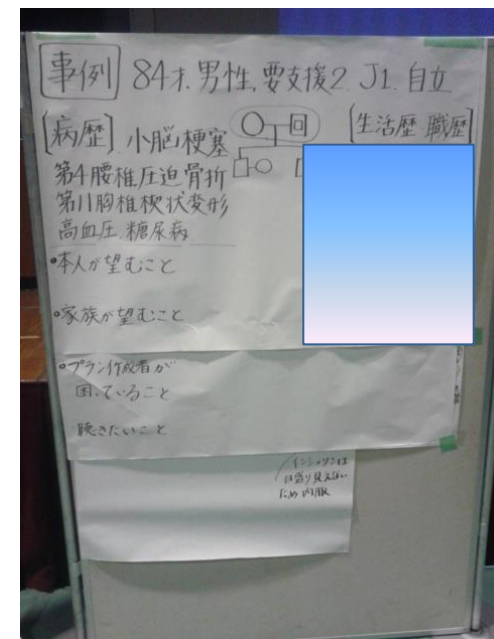 事例 84才.男性.要支援2.J1.自立
[病歴] 小脳梗塞
第4腰椎圧迫骨折
第11胸椎楔状変形
高血圧.糖尿病
[生活歴 職歴]
•本人が望むこと
•家族が望むこと
•プラン作成者が
困っていること
聴きたいこと
インシュリンは
目盛り見えない
ため内服